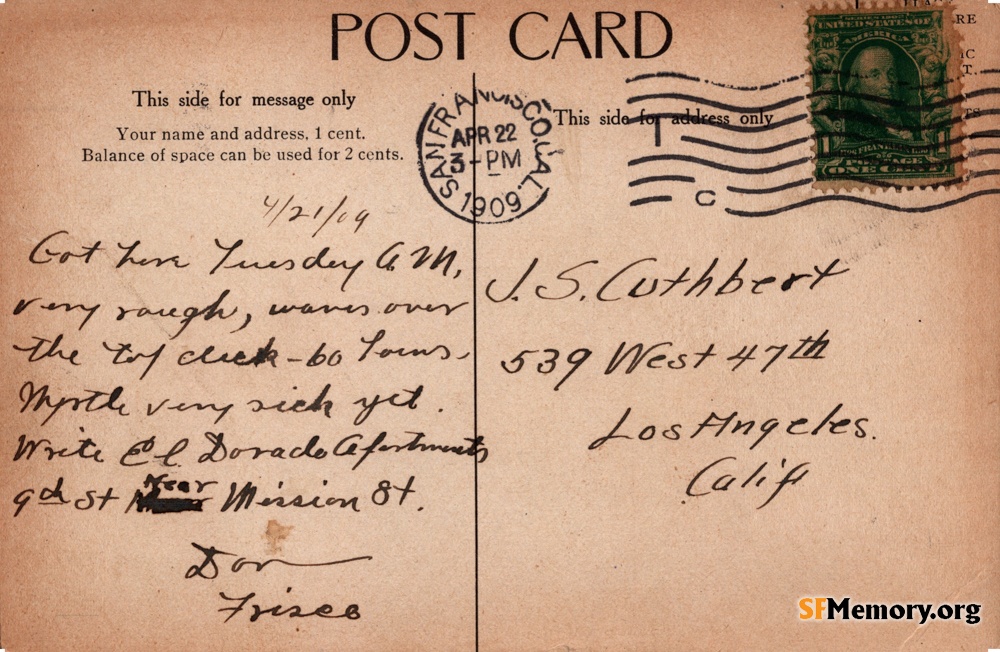 POST CARD
This side for message only
Your name and address, 1 cent.
Balance of space can be used for 2 cents.
SAN FRANCISCO, CAL.
APR 22
3-PM
1909
This side for address only
T
C
RE
IC
T.
TS
SERIES 1902
UNITED STATES OF
AMERICA
1 1
FRANKLIN
POSTAGE
ONE CENT
4/21/09
Got here Tuesday A.M,
very rough, waves over
the top deck - 60
Myrtle very sick yet.
Write El Dorado Apartments
9th St Near Mission St.
Don
Frisco
J. S. Cuthbert
539 West 47th
Los Angeles.
Calif
SFMemory.org